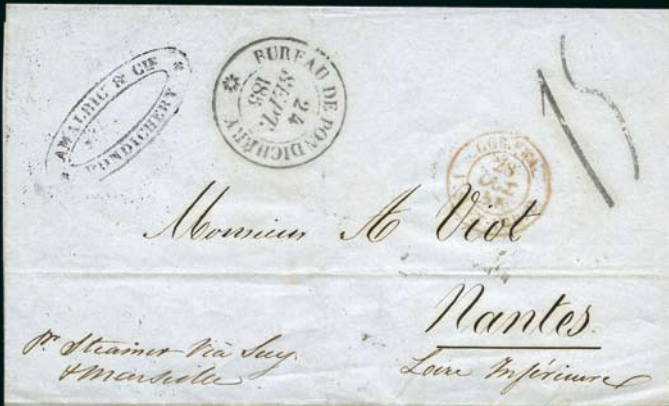 AMALRIC & Cie
PONDICHERY
BUREAU DE PONDICHERY
24
SEPT.
185
15
Monsieur A Viot
Nantes
Loire Inférieure
pr Steamer Via Suez
& Marseille